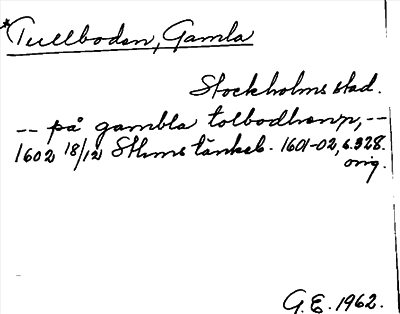 *Tullboden, Gamla
Stockholms stad.
-- på gambla tolbodhenn, --
1602 18/12 Sthms tänkeb. 1601-02, s. 328.
orig.
G.E. 1962.